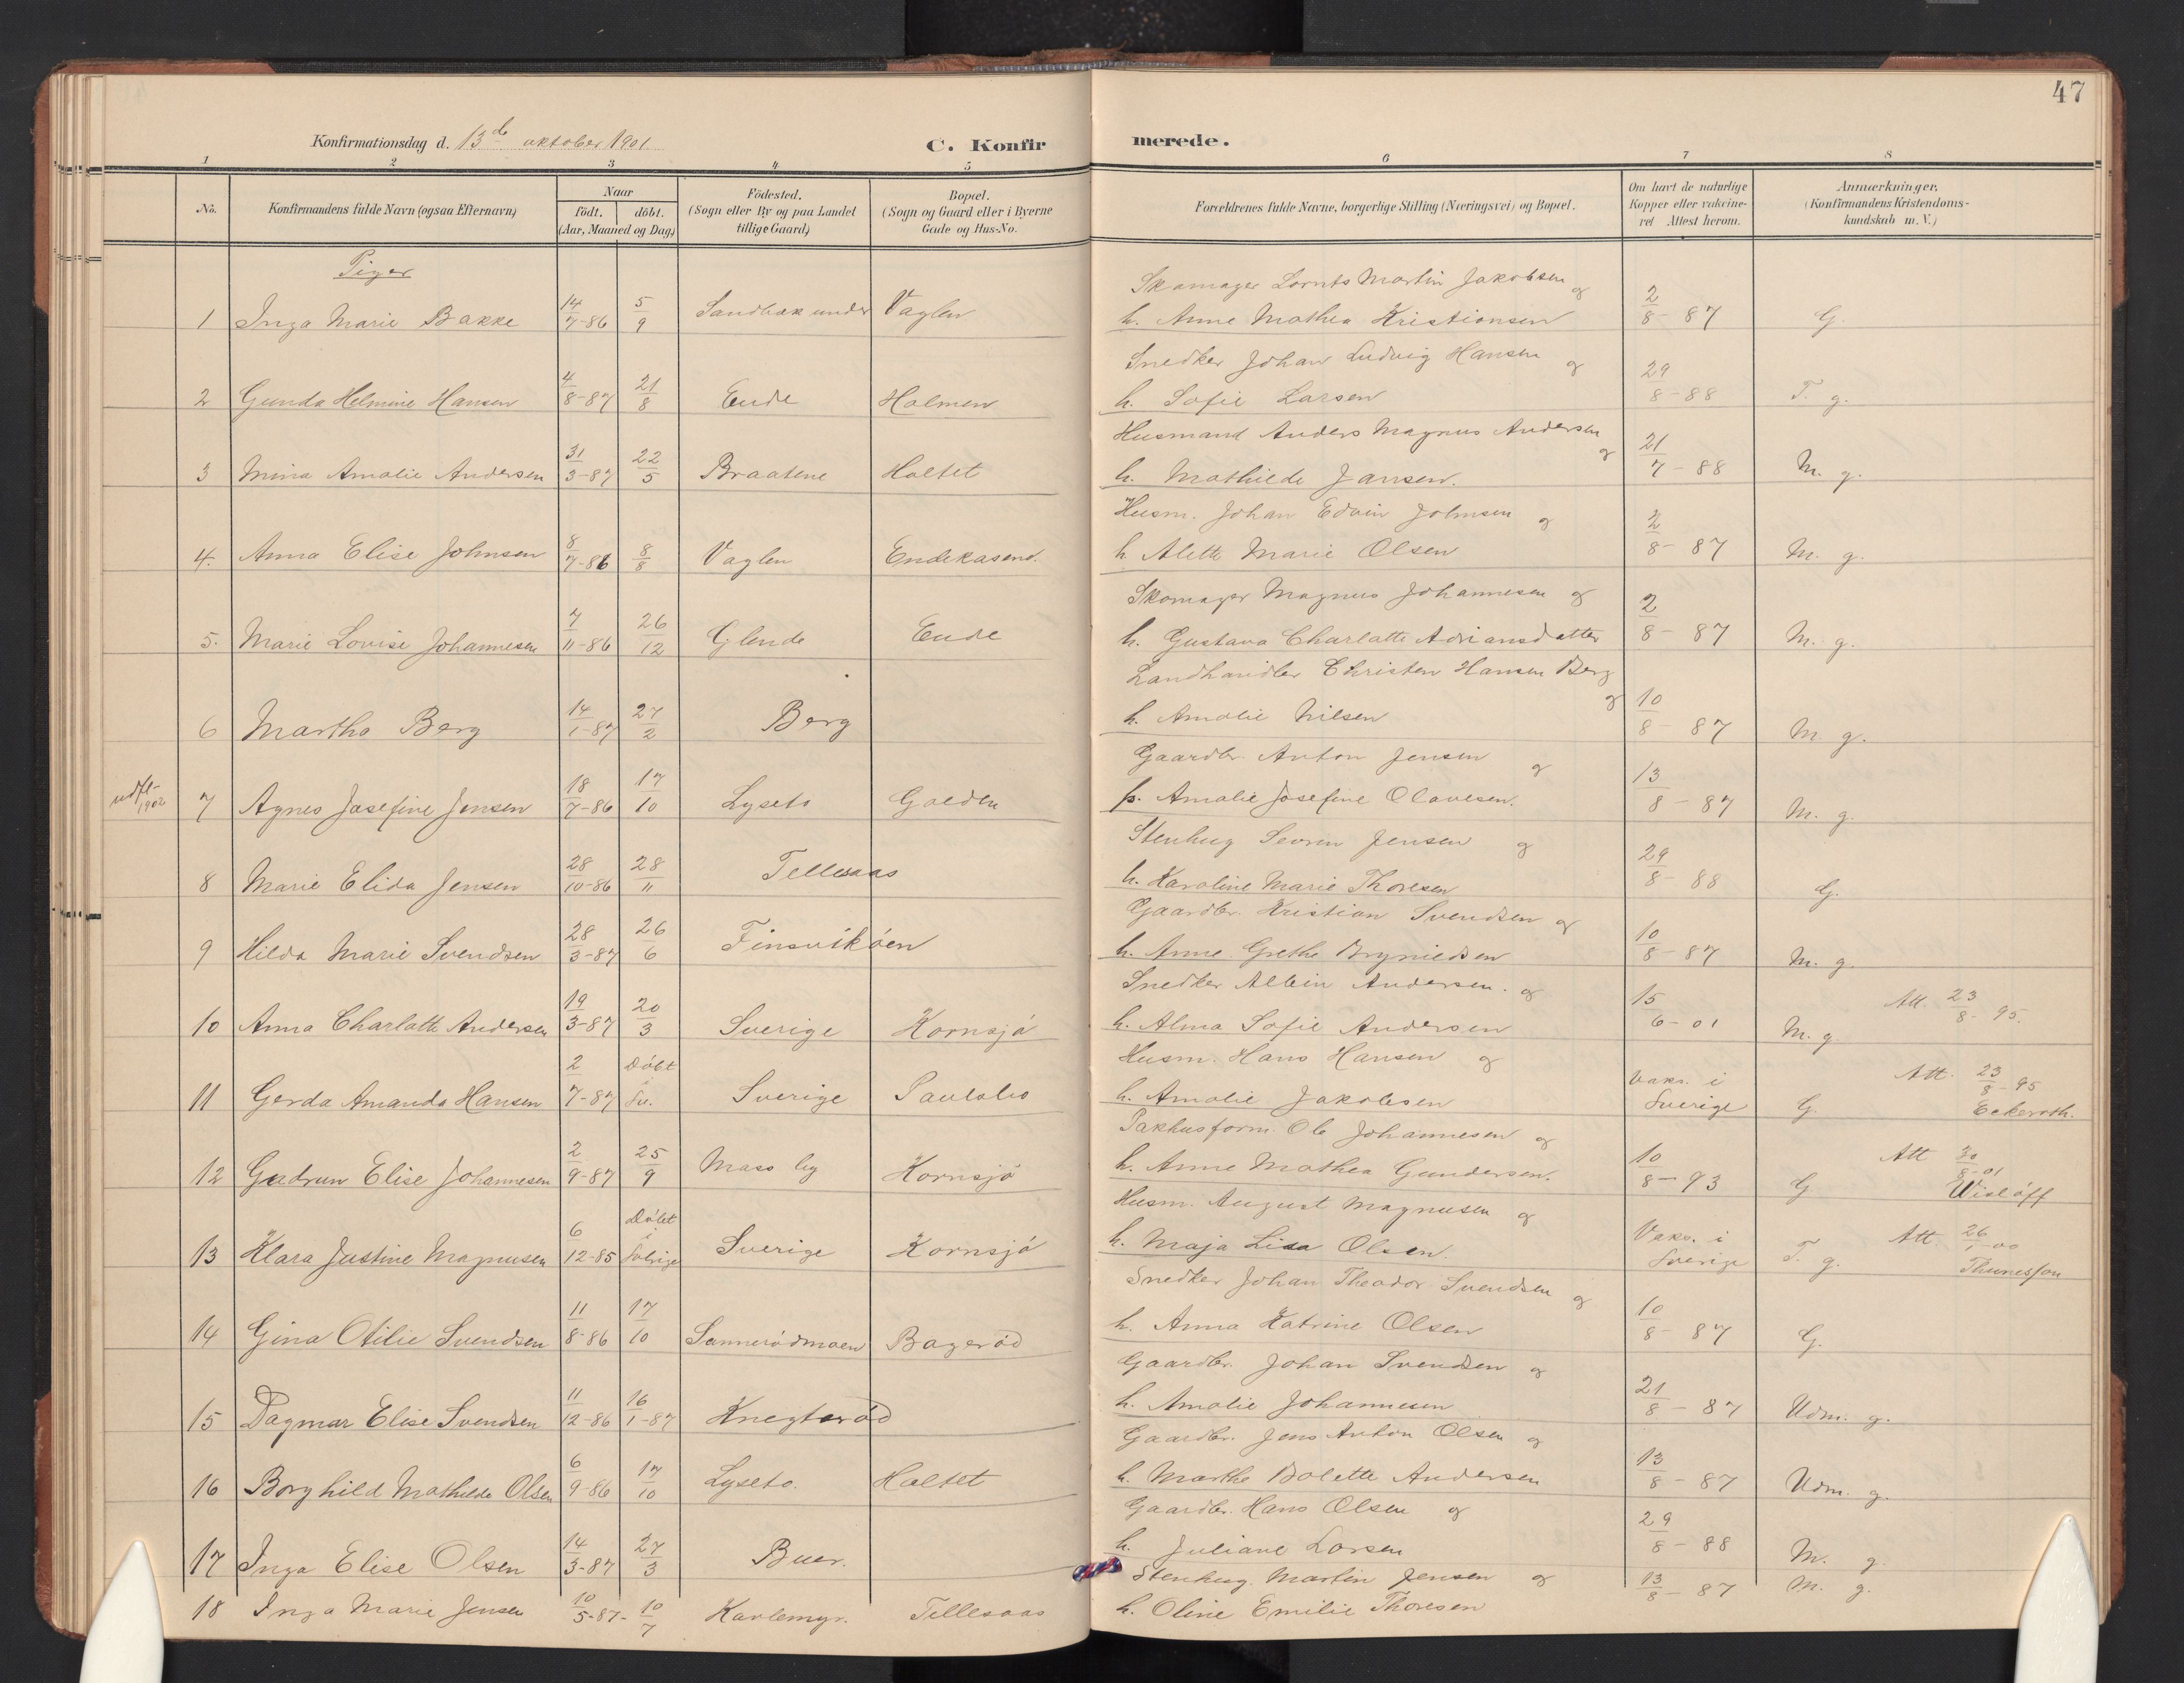 47
Konfirmationsdag d. 13de oktober 1901.
C. Konfirmerede.
1 2 3 4 5 6 7 8
No.
Konfirmandens fulde Navn (ogsaa Efternavn)
Naar
født. døbt.
(Aar, Maaned og Dag)
Födested.
(Sogn eller By og paa Landet
tillige Gaard)
Bopæl.
(Sogn og Gaard eller i Byerne
Gade og Hus-No.
Forældrenes fulde Navne, borgerlige Stilling (Næringsvei) og Bopæl.
Om havt de naturlige
Kopper eller vakcine-
ret Attest herom.
Anmærkninger.
(Konfirmandens Kristendoms-
kundskab m. V.)
Piger
Skomager Lornts Martin Jakobsen og
1 Inga Marie Bakke 14/7-86 5/9 Sandbæk under Vaglen h. Anne Mathea Kristiansen 2/8-87 G.
Snedker Johan Ludvig Hansen og
2 Gunda Helmine Hansen 4/8-87 21/8 Ende Holmen h. Sofie Larsen 29/8-88 T. g.
Husmand Anders Magnus Andersen og
3 Mina Amalie Andersen 31/3-87 22/5 Braatene Holtet h. Mathilde Jansen. 21/7-88 M. g.
Husm. Johan Edvin Johnsen og
4. Anna Elise Johnsen 8/7-86 8/8 Vaglen Endekasend. h. Alette Marie Olsen 2/8-87 M. g.
Skomager Magnus Johannesen og
5. Marie Lovise Johannesen 7/11-86 26/12 Glende Ende h. Gustava Charlotte Adriansdatter 2/8-87 M. g.
Landhandler Christen Hansen Berg og
6 Martha Berg 14/1-87 27/2 Berg h. Amalie Nilsen 10/8-87 M. g.
Gaardbr. Anton Jensen og
udfl-1902 7 Agnes Josefine Jensen 18/7-86 17/10 Lyseto Galden h. Amalie Josefine Olavesen. 13/8-87 M. g.
Stenhug Severin Jensen og
8 Marie Elida Jensen 28/10-86 28/11 Tellesaas h. Karoline Marie Thoresen 29/8-88 G.
Gaardbr. Kristian Svendsen og
9 Hilda Marie Svendsen 28/3-87 26/6 Finsvikøen h. Anne Grethe Brynildsen 10/8-87 M. g.
Snedker Albin Andersen. og
10 Anna Charlotte Andersen 19/3-87 20/3 Sverige Kornsjø h. Alma Sofie Andersen 15/6-01 M. g. Att. 23/8-95.
Husm. Hans Hansen og
11 Gerda Amanda Hansen 2/7-87 Döbt i Sv. Sverige Paulsbo h. Amalie Jakobsen Vaks. i Sverige G. Att. 23/8-95 Eckeroth.
Pakhusform. Ole Johannesen og
12 Gudrun Elise Johannesen 2/9-87 25/9 Moss by Kornsjø h. Anne Mathea Gundersen. 10/8-93 G Att 30/8-01 Wislöff
Husm. August Magnusen og
13 Klara Justine Magnusen 6/12-85 Döbt i Sverige Sverige Kornsjø h. Maja Lisa Olsen. Vaks. i Sverige T. g. Att. 26/1-00 Thunesson
Snedker Johan Theodor Svendsen og
14 Gina Otilie Svendsen 11/8-86 17/10 Sannerødmoen Bagerød h. Anna Katrine Olsen 10/8-87 G.
Gaardbr. Johan Svendsen og
15 Dagmar Elise Svendsen 11/12-86 16/1-87 Knegterød h. Amalie Johannesen 21/8-87 Udm. g.
Gaardbr. Jens Anton Olsen og
16 Borghild Mathilde Olsen 6/9-86 17/10 Lyseto. Holtet h. Marthe Bolette Andersen 13/8-87 Udm. g.
Gaardbr. Hans Olsen og
17 Inga Elise Olsen 14/3-87 27/3 Buer. h. Juliane Larsen 29/8-88 M. g.
Stenhug. Martin Jensen og
18 Inga Marie Jensen 10/5-87- 10/7 Karlemyr. Tellesaas h. Oline Emilie Thoresen 13/8-87 M. g.